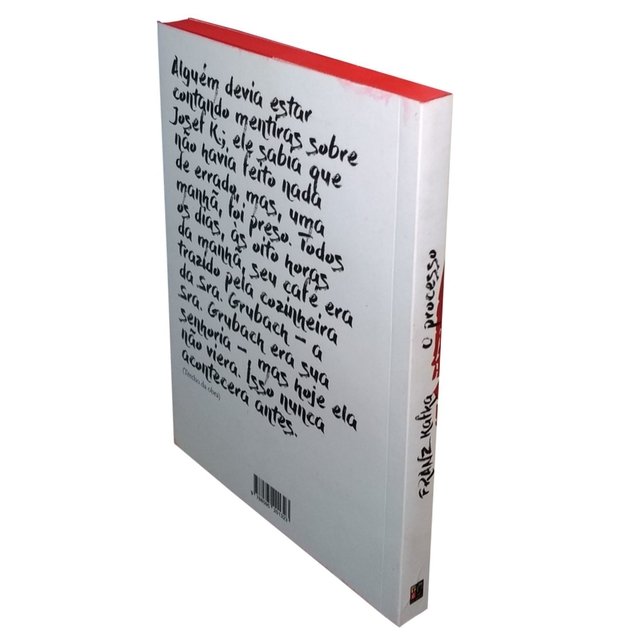 Alguém devia estar
contando mentiras sobre
Josef K.; ele sabia que
não havia feito nada
de errado, mas, uma
manhã, foi preso. Todos
os dias, às oito horas
da manhã, seu café era
trazido pela cozinheira
da Sra. Grubach – a
Sra. Grubach era sua
senhoria – mas hoje ela
não viera. Isso nunca
acontecera antes.
(Trecho da obra)
FRANZ Kafka O processo